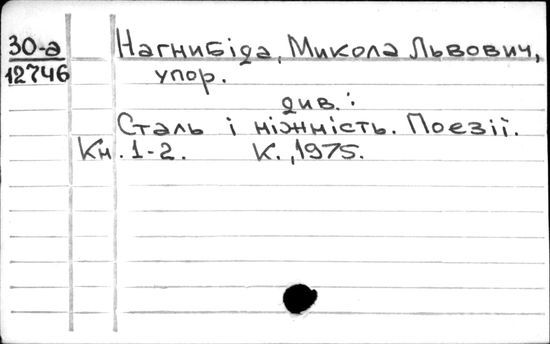 30-а Нагнибіда, Микола Львович,
12746 упор.
див.:
Сталь і ніжність. Поезії.
Кн. 1-2. К., 1975.